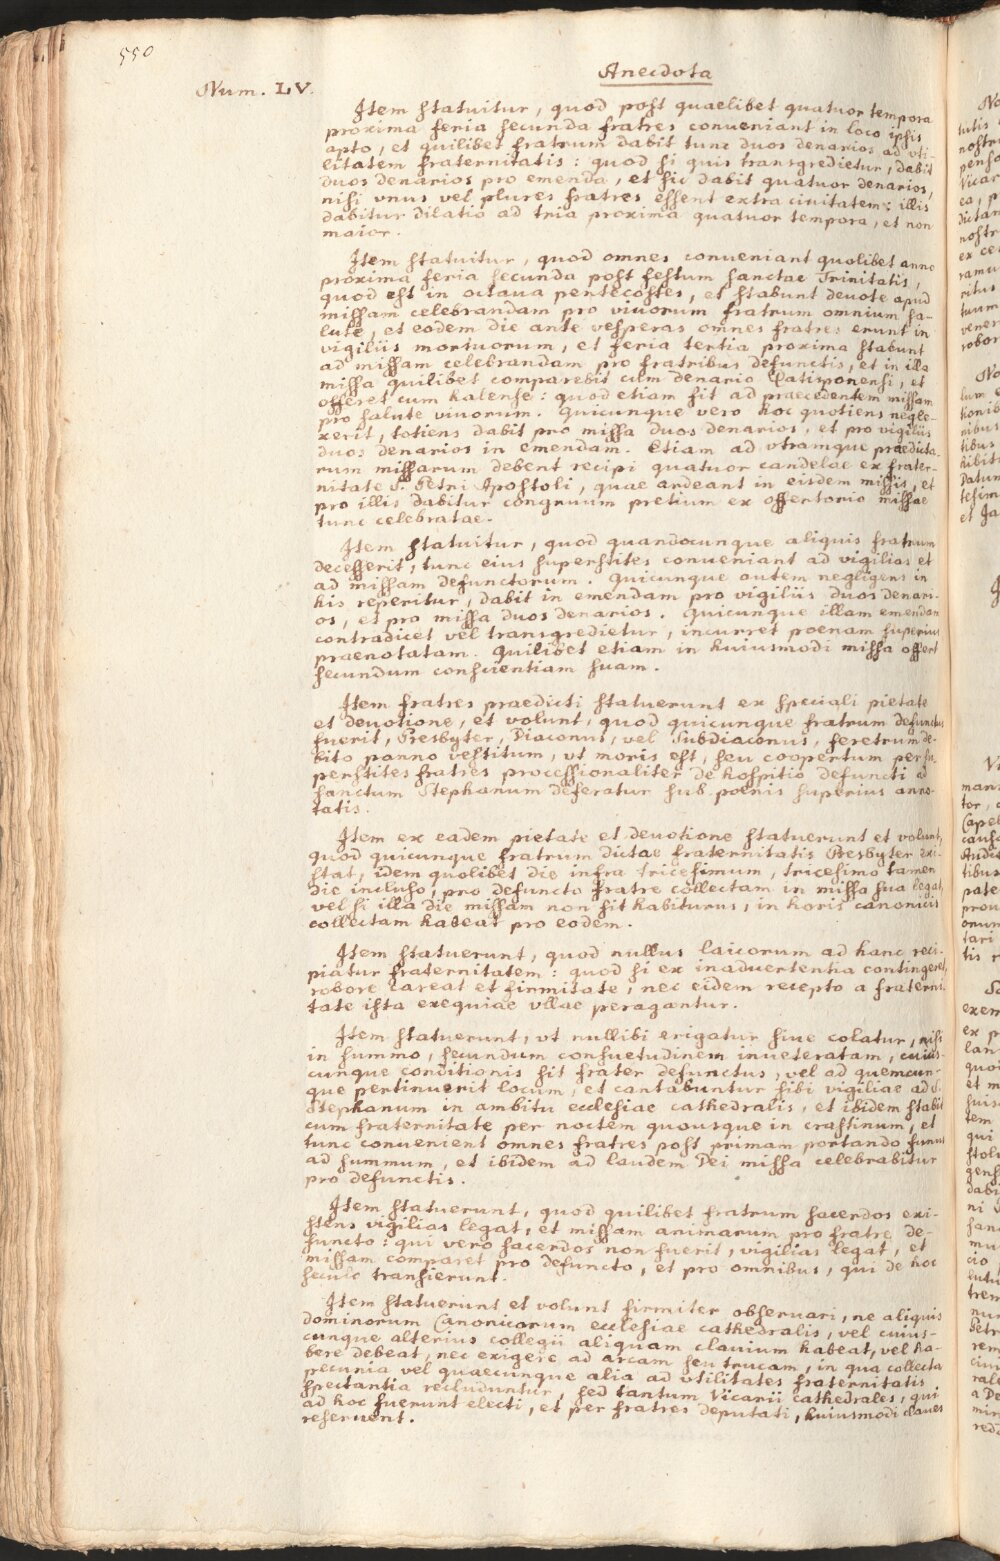 550
Anecdota
Num. LV.
Item statuitur, quod post quaelibet quatuor tempora
proxima feria secunda fratres conueniant in loco ipsis
apto, et quilibet fratrum dabit tunc duos denarios ad vti-
litatem fraternitatis: quod si quis transgredietur, dabit
duos denarios pro emenda, et sic dabit quatuor denarios,
nisi vnus vel plures fratres essent extra ciuitatem: illis
dabitur dilatio ad tria proxima quatuor tempora, et non
maior.
Item statuitur, quod omnes conueniant quolibet anno
proxima feria secunda post festum sanctae Trinitatis,
quod est in octaua pentecostes, et stabunt deuote apud
missam celebrandam pro viuorum fratrum omnium sa-
lute, et eodem die ante vesperas omnes fratres erunt in
vigiliis mortuorum, et feria tertia proxima stabunt
ad missam celebrandam pro fratribus defunctis, et in illa
missa quilibet comparebit cum denario Ratisponensi, et
offeret cum halense: quod etiam fit ad praecedentem missam
pro salute viuorum. Quicunque vero hoc quotiens negle-
xerit, totiens dabit pro missa duos denarios, et pro vigiliis
duos denarios in emendam. Etiam ad vtramque praedicta-
rum missarum debent recipi quatuor candelae ex frater-
nitate S. Petri Apostoli, quae ardeant in eisdem missis, et
pro illis dabitur congruum pretium ex offertorio missae
tunc celebratae.
Item statuitur, quod quandocunque aliquis fratrum
decesserit, tunc eius superstites conueniant ad vigilias et
ad missam defunctorum. Quicunque autem negligens in
his reperitur, dabit in emendam pro vigiliis duos denari-
os, et pro missa duos denarios. Quicunque illam emendam
contradicet vel transgredietur, incurret poenam superius
praenotatam. Quilibet etiam in huiusmodi missa offert
secundum conscientiam suam.
Item fratres praedicti statuerunt ex speciali pietate
et deuotione, et volunt, quod quicunque fratrum defunctus
fuerit, Presbyter, Diaconus, vel Subdiaconus, feretrum de-
bito panno vestitum, vt moris est, seu coopertum per su-
perstites fratres processionaliter de hospitio defuncti ad
sanctum Stephanum deferatur sub poenis superius anno-
tatis.
Item ex eadem pietate et deuotione statuerunt et volunt,
quod quicunque fratrum dictae fraternitatis Presbyter exi-
stat, idem quolibet die infra tricesimum, tricesimo tamen
die incluso, pro defuncto fratre collectam in missa sua legat,
vel si illa die missam non sit habiturus, in horis canonicis
collectam habeat pro eodem.
Item statuerunt, quod nullus laicorum ad hanc reci-
piatur fraternitatem: quod si ex inaduertentia contingeret,
robore careat et firmitate, nec eidem recepto a fraterni-
tate ista exequiae vllae peragantur.
Item statuerunt, vt nullibi erigatur siue colatur, nisi
in summo, secundum consuetudinem inueteratam, cuius-
cunque conditionis sit frater defunctus, vel ad quemcun-
que pertinuerit locum, et cantabuntur sibi vigiliae ad S.
Stephanum in ambitu ecclesiae cathedralis, et ibidem stabit
cum fraternitate per noctem quousque in crastinum, et
tunc conuenient omnes fratres post primam portando funus
ad summum, et ibidem ad laudem Dei missa celebrabitur
pro defunctis.
Item statuerunt, quod quilibet fratrum sacerdos exi-
stens vigilias legat, et missam animarum pro fratre de-
functo: qui vero sacerdos non fuerit, vigilias legat, et
missam comparet pro defuncto, et pro omnibus, qui de hoc
seculo transierunt.
Item statuerunt et volunt firmiter obseruari, ne aliquis
dominorum Canonicorum ecclesiae cathedralis, vel cuius-
cunque alterius collegii aliquam clauium habeat, vel ha-
bere debeat, nec exigere ad arcam seu trucam, in qua collecta
pecunia vel quaecunque alia ad vtilitates fraternitatis
spectantia recluduntur, sed tantum Vicarii cathedrales, qui
ad hoc fuerunt electi, et per fratres deputati, huiusmodi claues
reseruent.